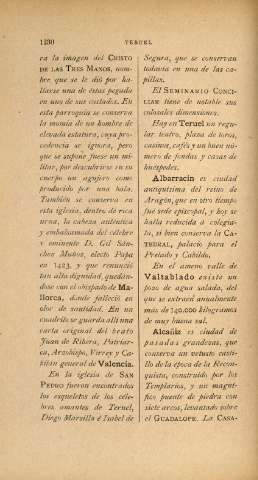 1230
TERUEL
ra la imagen del CRISTO
DE LAS TRES MANOS, nom-
bre que se le dió por ha-
llarse una de éstas pegada
en uno de sus costados. En
esta parroquia se conserva
la momia de un hombre de
elevada estatura, cuya pro-
cedencia se ignora, pero
que se supone fuese un mi-
litar, por descubrirse en su
cuerpo un agujero como
producido por una bala.
También se conserva en
esta iglesia, dentro de rica
urna, la cabeza auténtica
y embalsamada del célebre
y eminente D. Gil Sán-
chez Muñoz, electo Papa
en 1423, y que renunció
tan alta dignidad, quedán-
dose con el obispado de Ma-
llorca, donde falleció en
olor de santidad. En un
cuadrito se guarda allí una
carta original del beato
Juan de Ribera, Patriar-
ca, Arzobispo, Virrey y Ca-
pitán general de Valencia.
En la iglesia de SAN
PEDRO fueron encontrados
los esqueletos de los céle-
bres amantes de Teruel,
Diego Marsilla é Isabel de
Segura, que se conservan
todavía en una de las ca-
pillas.
El SEMINARIO CONCI-
LIAR tiene de notable sus
colosales dimensiones.
Hay en Teruel un regu-
lar teatro, plaza de toros,
casinos, cafés y un buen nú-
mero de fondas y casas de
huéspedes.
Albarracín es ciudad
antiquísima del reino de
Aragón, que en otro tiempo
fué sede episcopal, y hoy se
halla reducida á colegia-
ta, si bien conserva la CA-
TEDRAL, palacio para el
Prelado y Cabildo.
En el ameno valle de
Valtablado existe un
pozo de agua salada, del
que se extraen anualmente
más de 140.000 kilogramos
de muy buena sal.
Alcañiz es ciudad de
pasadas grandezas, que
conserva un vetusto casti-
llo de la época de la Recon-
quista, construído por los
Templarios, y un magní-
fico puente de piedra con
siete arcos, levantado sobre
el GUADALOPE. La CASA-